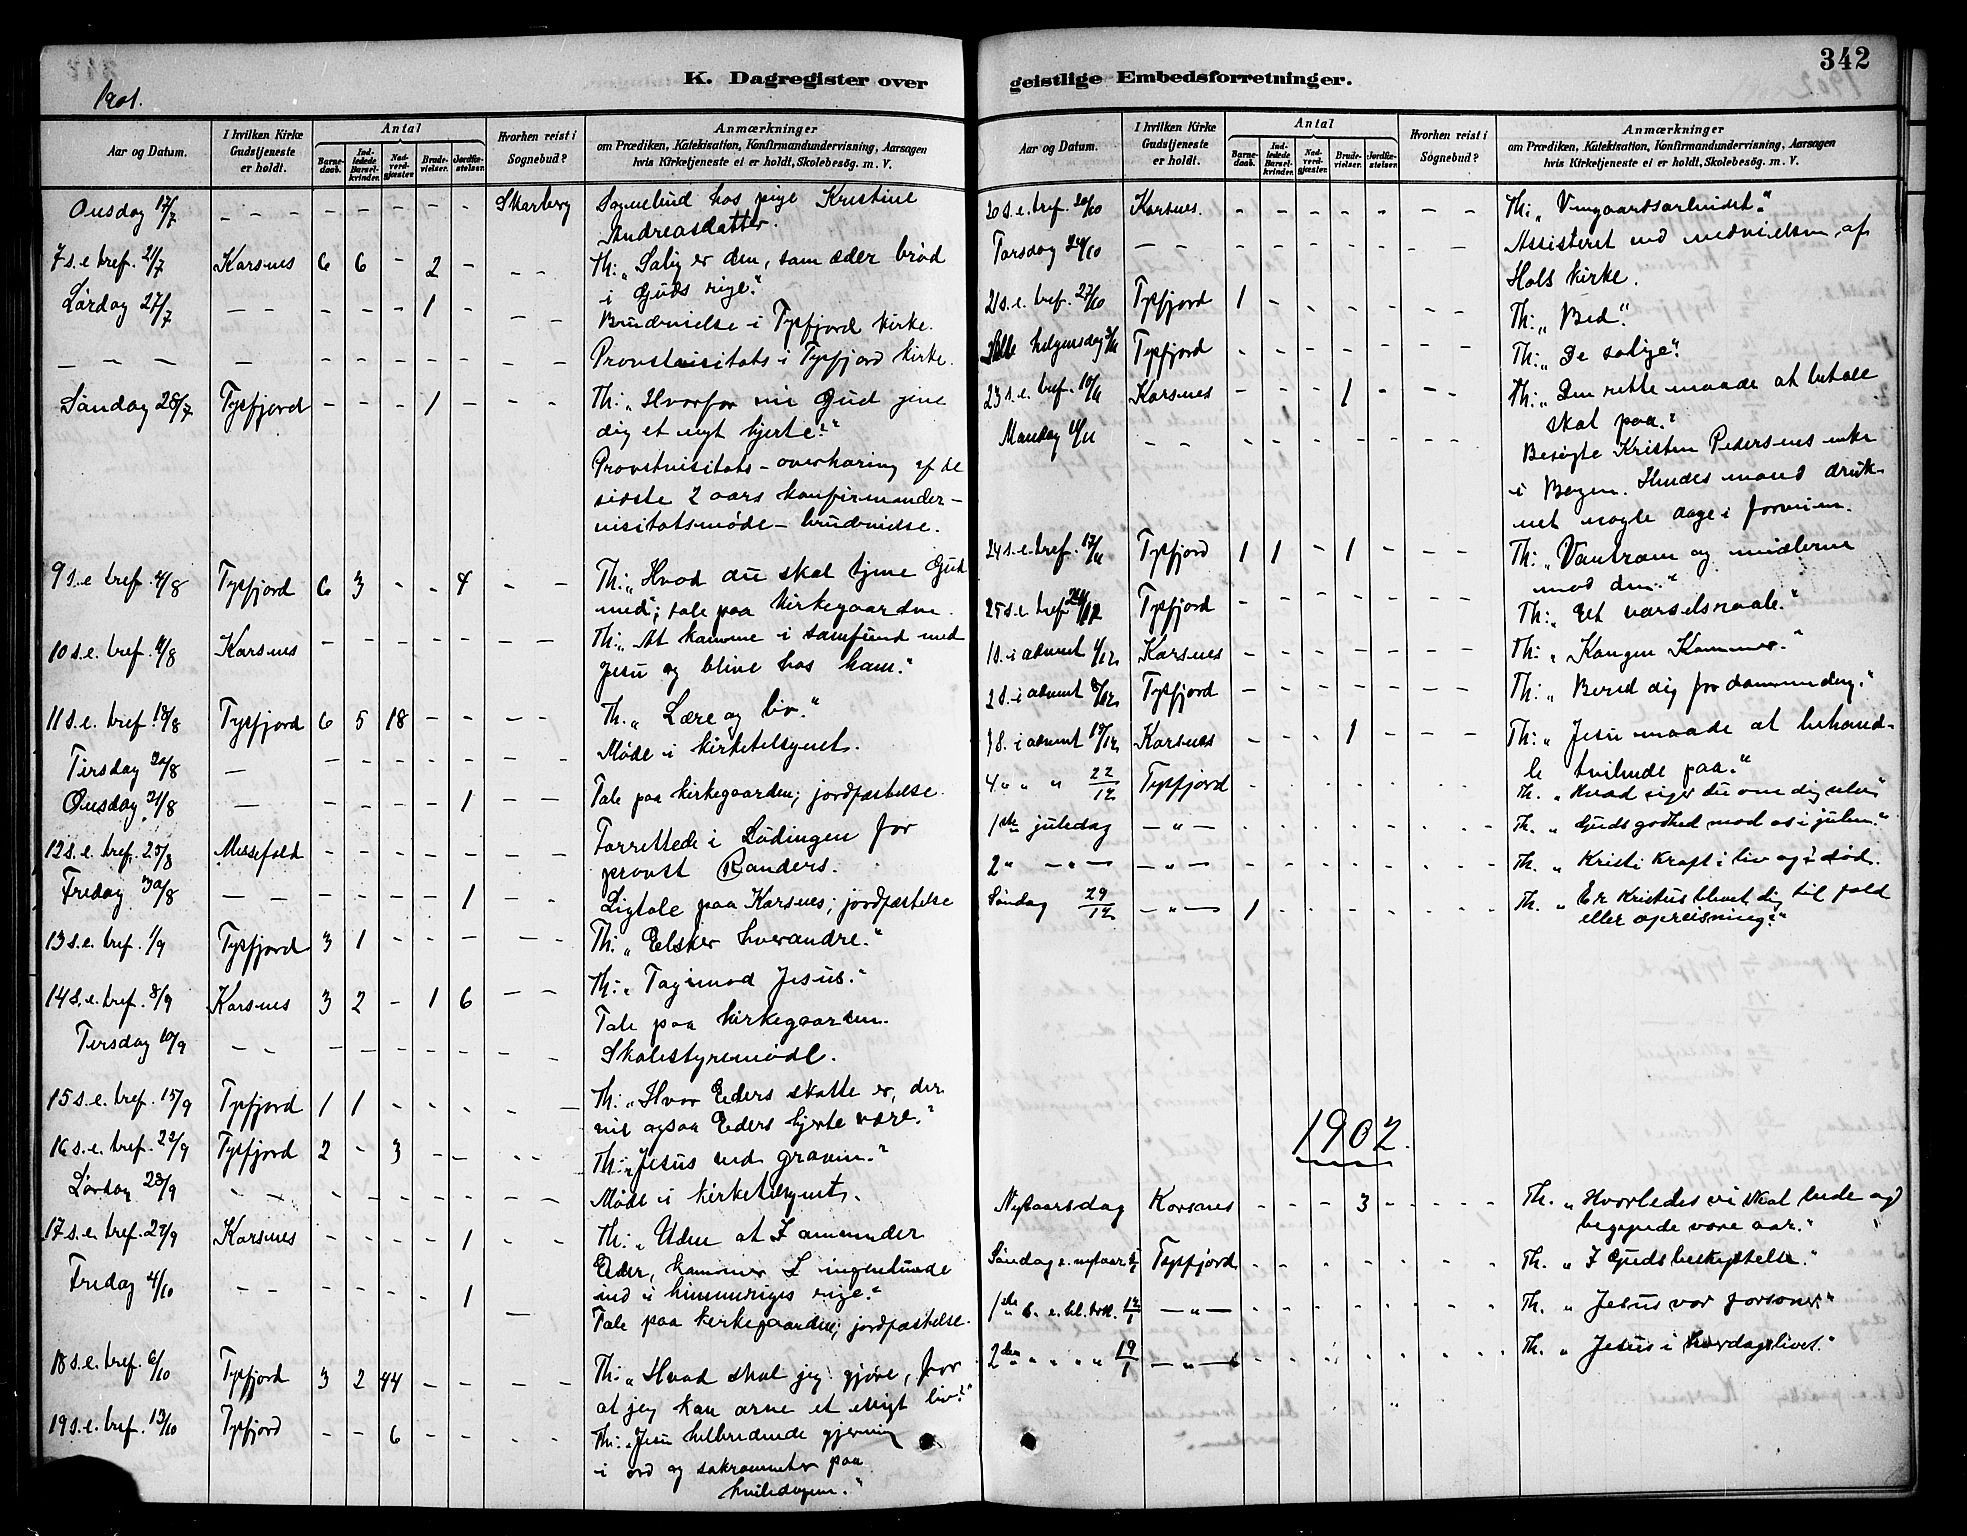 342
K. Dagregister over
geistlige Embedsforretninger.
1901.
Aar og Datum.
I hvilken Kirke Gudstjeneste er holdt.
Antal
Barnedaab.
Indledede Barselkvinder.
Nadverdgjæster.
Brudevielser.
Jordfæstelser.
Hvorhen reist i Sognebud?
Anmærkninger
om Prædiken, Katekisation, Konfirmandundervisning, Aarsagen
hvis Kirketjeneste ei er holdt, Skolebesøg. m. V.
Onsdag 17/7 – – – – – – – – Skarberg Sognebud hos pige Kristine
Andreasdatter.
7 s.e. tref. 21/7 Korsnes 6 6 – 2 – – – Th: „Salig er den, som æder brød
i Guds rige."
Lørdag 27/7 – – – – – 1 – – – Brudevielse i Tysfjord kirke.
– – – – Provstevisitats i Tysfjord kirke.
Søndag 28/7 Tysfjord – – – 1 – – – Th: „Hvorfor vil Gud give
dig et nyt hjerte?"
Provstvisitats – overhøring af de
sidste 2 aars konfirmander –
visitatsmøde – brudevielse.
9 s.e. tref. 4/8 Tysfjord 6 3 – – 4 – – Th: „Hvad du skal tjene Gud
med"; tale paa kirkegaarden.
10 s.e. tref. 11/8 Korsnes – – – – – – – Th: „At komme i samfund med
Jesu og blive hos ham."
11 s.e. tref. 18/8 Tysfjord 6 5 18 – – – – Th. „Lære og liv."
Tirsdag 20/8 – – – – – – – – Møde i kirketilsynet.
Onsdag 21/8 – – – – – 1 – – Tale paa kirkegaarden; jordfæstelse.
12 s.e. tref. 25/8 Mussefold – – – – – – – Forrettede i Lødingen for
provst Randers.
Fredag 30/8 – – – – – 1 – – Ligtale paa Korsnes; jordfæstelse
13 s.e. tref. 1/9 Tysfjord 3 1 – – – – – Th: „Elsker hverandre."
14 s.e. tref. 8/9 Korsnes 3 2 – 1 6 – – Th: „Tag imod Jesus."
Tale paa kirkegaarden.
Tirsdag 10/9 – – – – – – – – – Skolestyremøde.
15 s.e. tref. 15/9 Tysfjord 1 1 – – – – – Th: „Hvor Eders skatte er, der
vil ogsaa Eders hjerte være."
16 s.e. tref. 22/9 Tysfjord 2 – 3 – – – – Th: „Jesus ved graven."
Lørdag 28/9 – – – – – – – – – Møde i kirketilsynet.
17 s.e. tref. 29/9 Korsnes – – – – 1 – – Th: „Uden at I omvender
Eder, kommer I ingenlunde
ind i himmeriges rige."
Fredag 4/10 – – – – – – 1 – Tale paa kirkegaarden; jordfæstelse.
18 s.e. tref. 6/10 Tysfjord 3 2 44 – – – – Th: „Hvad skal jeg gjøre, for
at jeg kan arve et evigt liv?"
19 s.e. tref. 13/10 Tysfjord – – 6 – – – – Th: „Jesu helbredende gjerning
i ord og sakramenter paa
hviledagen."
Aar og Datum.
I hvilken Kirke Gudstjeneste er holdt.
Antal
Barnedaab.
Indledede Barselkvinder.
Nadverdgjæster.
Brudevielser.
Jordfæstelser.
Hvorhen reist i Søgnebud?
Anmærkninger
om Prædiken, Katekisation, Konfirmandundervisning, Aarsagen
hvis Kirketjeneste ei er holdt, Skolebesøg. m. V.
20 s.e. tref. 20/10 Korsnes. – – – – – – – Th: „Vingaardsarbeidet."
Torsdag 24/10 – – – – – – – – – Assisteret ved indvielsen af
Hols kirke.
21 s.e. tref. 27/10 Tysfjord 1 – – – – – – Th: „Bed."
Alle helgensdag 3/11 Tysfjord – – – – – – – Th: „De salige."
23 s.e. tref. 10/11 Korsnes – – – 1 – – – Th: „Den rette maade at betale
skat paa."
Mandag 11/11 – – – – – – – – – Besøgte Kristen Pedersens enke
i Bogen. Hendes mand druk-
net nogle dage i forveien.
24 s.e. tref. 17/11 Tysfjord 1 1 – 1 – – – Th: „Vantroen og midlerne
mod den."
25 s.e. tref. Tysfjord – – – – – – – Th: „Et varselsraab."
1 s. i advent 1/12 Korsnes – – – – – – – Th: „Kongen kommer."
2 s. i advent 8/12 Tysfjord – – – – – – – Th: „Bered dig for dommedag."
3 s. i advent 15/12 Korsnes – – – 1 – – – Th: „Jesu maade at behand-
le tvilende paa."
4 „ „ „ 22/12 Tysfjord – – – – – – – Th. „Hvad siger du om dig selv"
1ste juledag – „ – – – – – – – – Th. „Guds godhed mod os i julen."
2 „ – „ – – „ – – – – – – – – Th. „Kristi kraft i liv og i død.
Søndag 29/12 – „ – 1 – – – – – – Th. „Er Kristus blevet dig til fald
eller opreisning?"
1902.
Nytaarsdag Korsnes – – – 3 – – – Th. „Hvorledes vi skal bede og
begynde vore aar."
Søndag e. nytaar 5/1 Tysfjord – – – – – – – Th. „I Guds beskyttelse."
1ste s. e. hl. tr.k. 12/1 – „ – – – – – – – – Th. „Jesus vor forsoner"
2den „ „ „ „ 19/1 – „ – – – – – – – – Th. „Jesus i hverdagslivet."